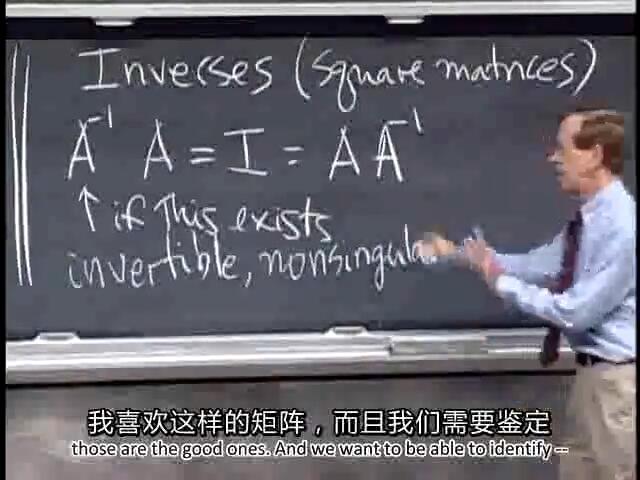 Inverses (square matrices)
A⁻¹ A = I = A A⁻¹
↑ if this exists
invertible, nonsingula
我喜欢这样的矩阵，而且我们需要鉴定
those are the good ones. And we want to be able to identify --